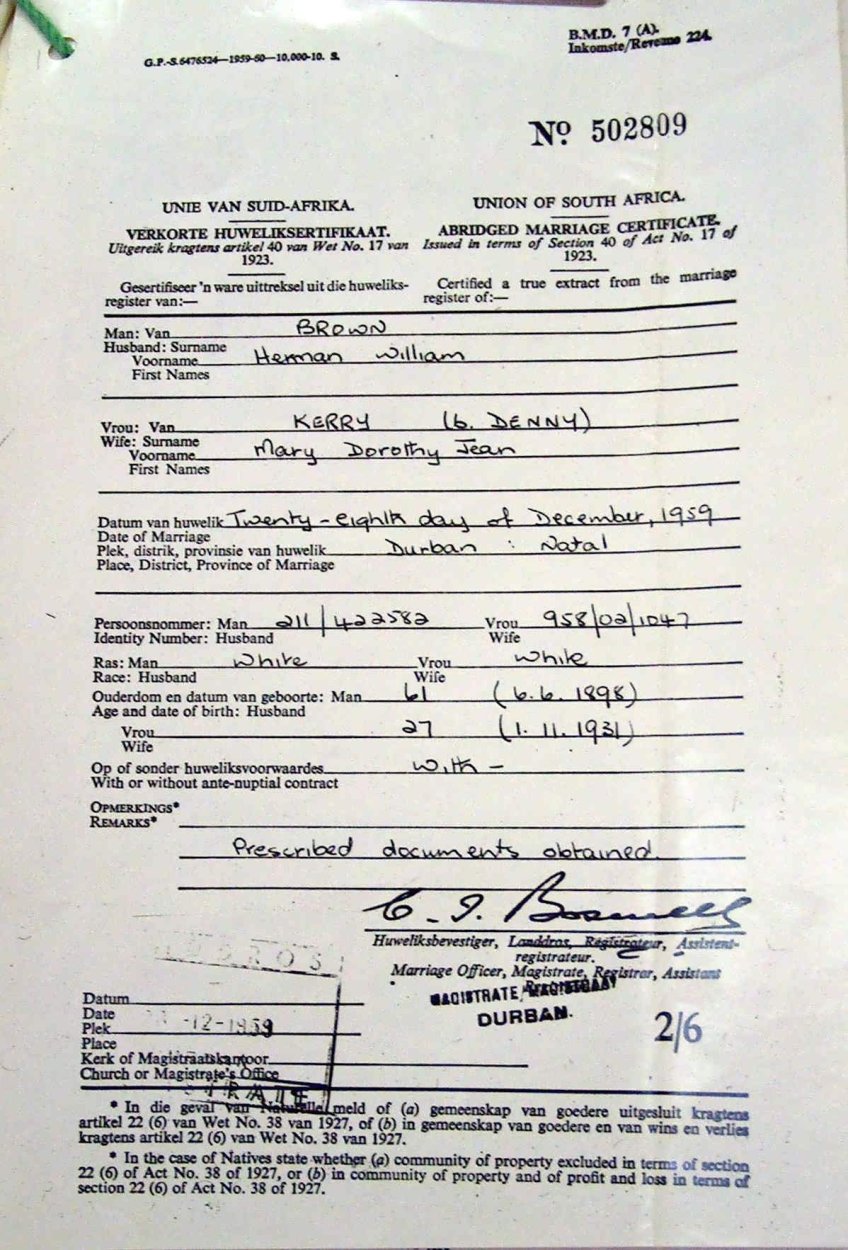 G.P.-S.6476524—1959-60—10,000-10. S.
B.M.D. 7 (A).
Inkomste/Revenue 224.
No. 502809
UNIE VAN SUID-AFRIKA.
VERKORTE HUWELIKSERTIFIKAAT.
Uitgereik kragtens artikel 40 van Wet No. 17 van
1923.
Gesertifiseer 'n ware uittreksel uit die huweliks-
register van:—
UNION OF SOUTH AFRICA.
ABRIDGED MARRIAGE CERTIFICATE.
Issued in terms of Section 40 of Act No. 17 of
1923.
Certified a true extract from the marriage
register of:—
Man: Van BROWN
Husband: Surname
Voorname Herman William
First Names
Vrou: Van KERRY (b. DENNY)
Wife: Surname
Voorname Mary Dorothy Jean
First Names
Datum van huwelik Twenty-eighth day of December, 1959
Date of Marriage
Plek, distrik, provinsie van huwelik Durban : Natal
Place, District, Province of Marriage
Persoonsnommer: Man 211/422582 Vrou 958/02/1047
Identity Number: Husband Wife
Ras: Man White Vrou White
Race: Husband Wife
Ouderdom en datum van geboorte: Man 61 (6.6.1898)
Age and date of birth: Husband
Vrou 27 (1.11.1931)
Wife
Op of sonder huweliksvoorwaardes With –
With or without ante-nuptial contract
OPMERKINGS*
REMARKS*
Prescribed documents obtained.
Huweliksbevestiger, Landdros, Registrateur, Assistent-
registrateur.
Marriage Officer, Magistrate, Registrar, Assistant
MAGISTRATE
DURBAN.
2/6
Datum
Date
-12-1959
Plek
Place
Kerk of Magistraatskantoor
Church or Magistrate's Office
* In die geval van Naturelle meld of (a) gemeenskap van goedere uitgesluit kragtens
artikel 22 (6) van Wet No. 38 van 1927, of (b) in gemeenskap van goedere en van wins en verlies
kragtens artikel 22 (6) van Wet No. 38 van 1927.
* In the case of Natives state whether (a) community of property excluded in terms of section
22 (6) of Act No. 38 of 1927, or (b) in community of property and of profit and loss in terms of
section 22 (6) of Act No. 38 of 1927.